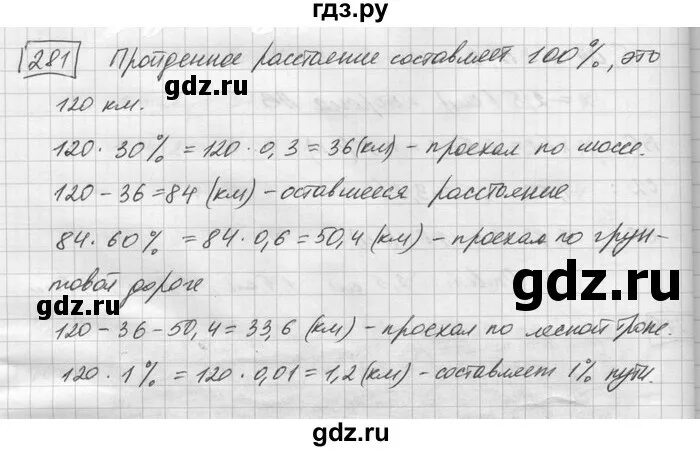 гдз.ру
281 Пройденное расстояние составляет 100%, это
120 км.
gdz.ru
gdz.ru
120 · 30% = 120 · 0,3 = 36 (км) - проехал по шоссе.
120 - 36 = 84 (км) - оставшееся расстояние
84 · 60% = 84 · 0,6 = 50,4 (км) - проехал по грун-
gdz.ru
товой дороге
gdz.ru
120 - 36 - 50,4 = 33,6 (км) - проехал по лесной тропе.
120 · 1% = 120 · 0,01 = 1,2 (км) - составляет 1% пути.
gdz.ru
gdz.ru
gdz.ru